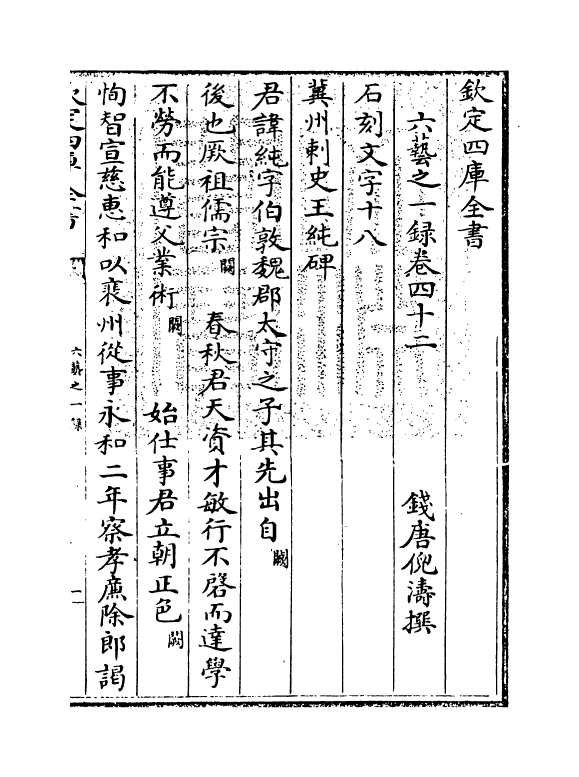 欽定四庫全書
六藝之一録卷四十二
錢唐倪濤撰
石刻文字十八
冀州刺史王純碑
君諱純字伯敦魏郡太守之子其先出自闕
後也厥祖儒宗闕 春秋君天資才敏行不啓而達學
不勞而能遵父業術闕 始仕事君立朝正色闕
恂智宣慈惠和以襄州從事永和二年察孝廉除郎謁
六藝之一録
一